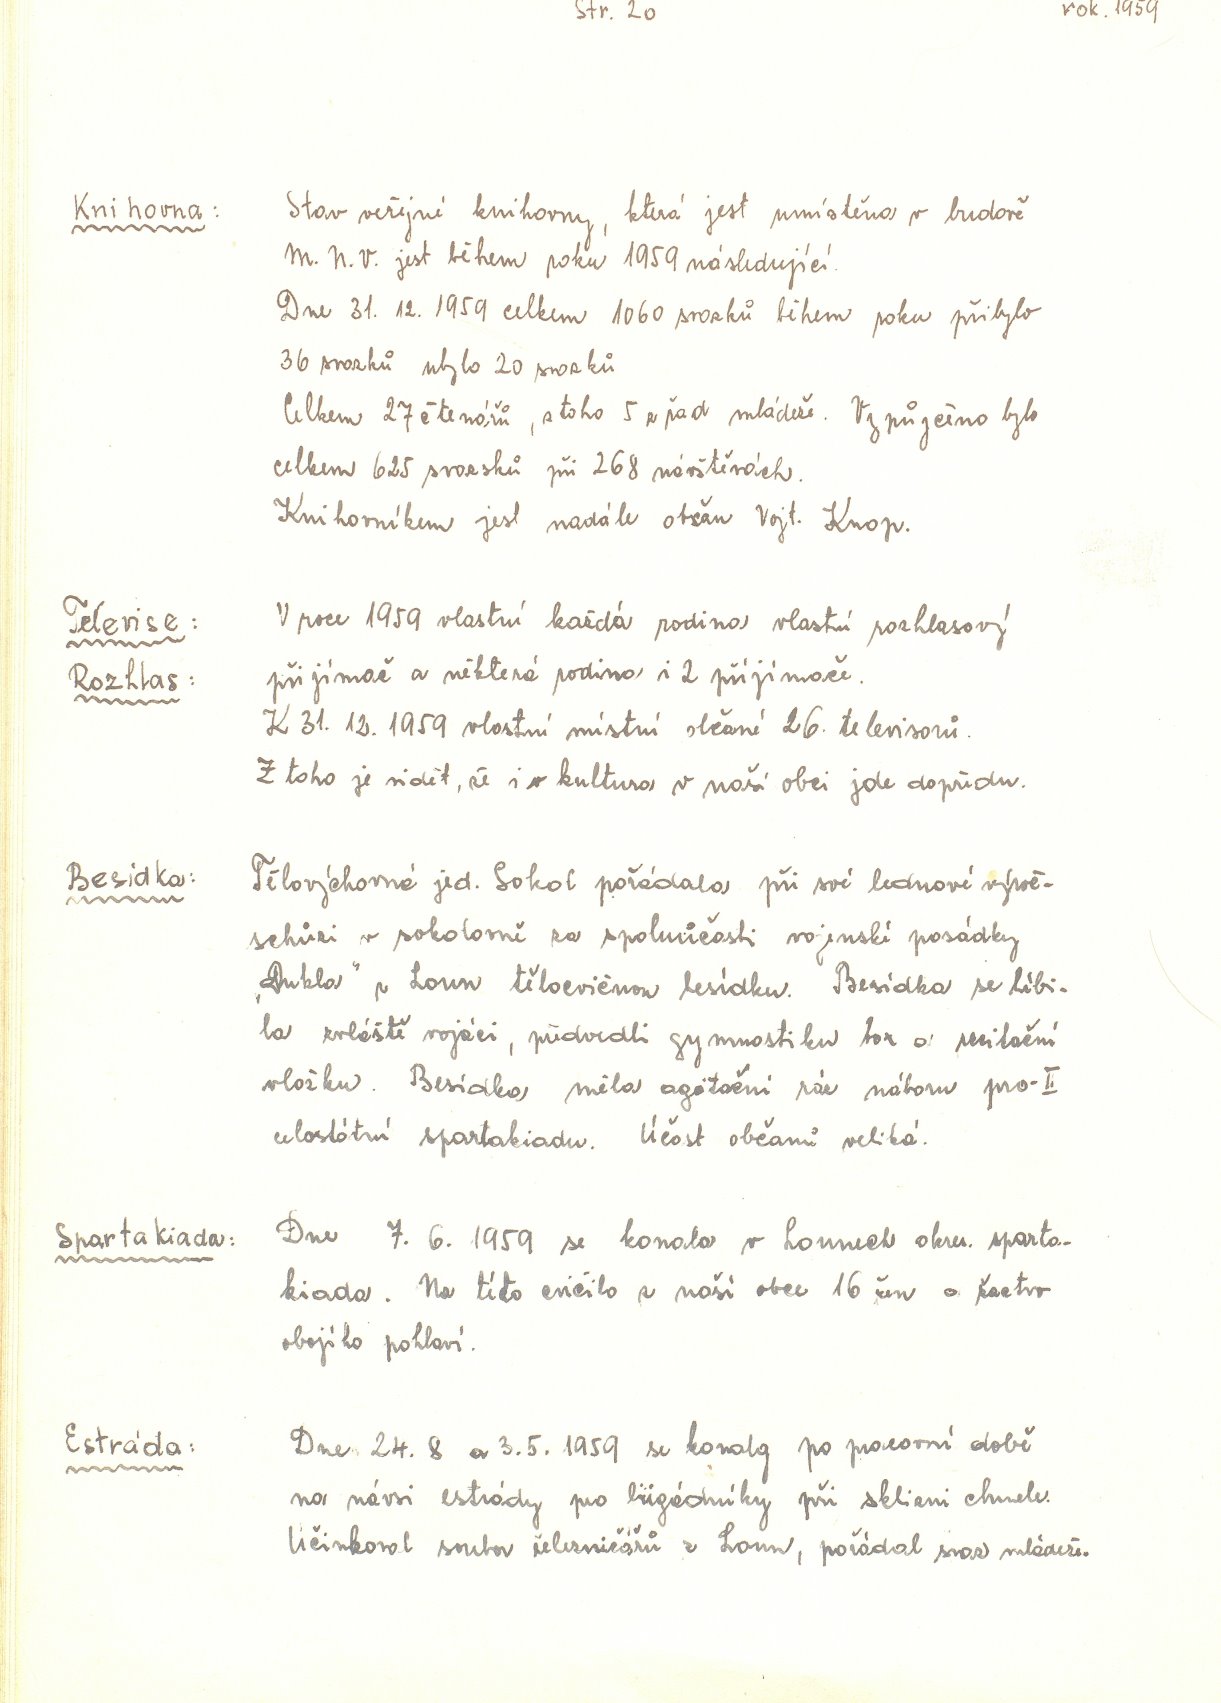 Str. 20
rok. 1959
Knihovna: Stav veřejné knihovny, která jest umístěna v budově
M. N. V. jest během roku 1959 následující.
Dne 31. 12. 1959 celkem 1060 svazků během roku přibylo
36 svazků ubylo 20 svazků
Celkem 27 čtenářů, z toho 5 z řad mládeže. Vypůjčeno bylo
celkem 625 svazsků při 268 návštěvách.
Knihovníkem jest nadále občan Vojt. Knop.
Televise: V roce 1959 vlastní každá rodina vlastní rozhlasový
Rozhlas: přijímač a některá rodina i 2 přijímače.
K 31. 12. 1959 vlastní místní občané 26. televisorů.
Z toho je vidět, že i kultura v naší obci jde dopředu.
Besídka: Tělovýchovná jed. Sokol pořádala při své lednové výroč-
schůzi v sokolovně za spoluúčasti vojenské posádky
„Dukla" z Loun tělocvičnou besídku. Besídka se líbi-
la zvláště vojáci, předvedli gymnastiku box a recitační
vložku. Besídka měla agitační ráz náboru pro II
celostátní spartakiadu. Účast občanů veliká.
Spartakiada: Dne 7. 6. 1959 se konala v Lounech okres. sparta-
kiada. Na této cvičilo z naší obce 16 žen a žactvo
obojího pohlaví.
Estráda: Dne 24. 8 a 3. 5. 1959 se konaly po pracovní době
na návsi estrády pro brigádníky při sklizni chmele.
Účinkoval soubor železničářů z Loun, pořádal svaz mládeže.